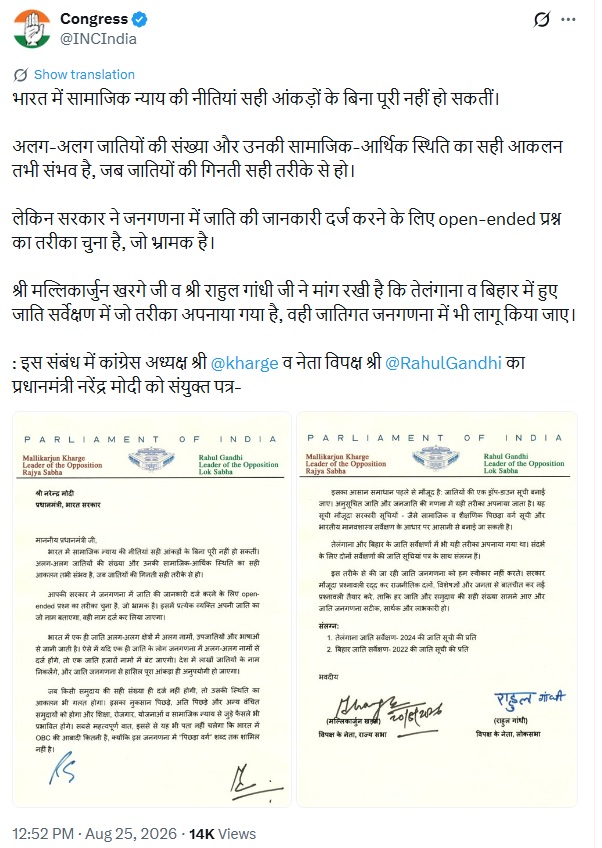 Congress
@INCIndia
Show translation
भारत में सामाजिक न्याय की नीतियां सही आंकड़ों के बिना पूरी नहीं हो सकतीं।
अलग-अलग जातियों की संख्या और उनकी सामाजिक-आर्थिक स्थिति का सही आकलन
तभी संभव है, जब जातियों की गिनती सही तरीके से हो।
लेकिन सरकार ने जनगणना में जाति की जानकारी दर्ज करने के लिए open-ended प्रश्न
का तरीका चुना है, जो भ्रामक है।
श्री मल्लिकार्जुन खरगे जी व श्री राहुल गांधी जी ने मांग रखी है कि तेलंगाना व बिहार में हुए
जाति सर्वेक्षण में जो तरीका अपनाया गया है, वही जातिगत जनगणना में भी लागू किया जाए।
: इस संबंध में कांग्रेस अध्यक्ष श्री @kharge व नेता विपक्ष श्री @RahulGandhi का
प्रधानमंत्री नरेंद्र मोदी को संयुक्त पत्र-
PARLIAMENT OF INDIA
Mallikarjun Kharge
Leader of the Opposition
Rajya Sabha
Rahul Gandhi
Leader of the Opposition
Lok Sabha
श्री नरेन्द्र मोदी
प्रधानमंत्री, भारत सरकार
माननीय प्रधानमंत्री जी,
भारत में सामाजिक न्याय की नीतियां सही आंकड़ों के बिना पूरी नहीं हो सकतीं।
अलग-अलग जातियों की संख्या और उनकी सामाजिक-आर्थिक स्थिति का सही
आकलन तभी संभव है, जब जातियों की गिनती सही तरीके से हो।
आपकी सरकार ने जनगणना में जाति की जानकारी दर्ज करने के लिए open-
ended प्रश्न का तरीका चुना है, जो भ्रामक है। इसमें प्रत्येक व्यक्ति अपनी जाति का
जो नाम बताएगा, वही नाम दर्ज कर लिया जाएगा।
भारत में एक ही जाति अलग-अलग क्षेत्रों में अलग नामों, उपजातियों और भाषाओं
से जानी जाती है। ऐसे में यदि एक ही जाति के लोग जनगणना में अलग-अलग नामों से
दर्ज होंगे, तो एक जाति हजारों नामों में बंट जाएगी। देश में लाखों जातियों के नाम
निकलेंगे, और जातिगत जनगणना से हासिल पूरा आंकड़ा ही अनुपयोगी हो जाएगा।
जब किसी समुदाय की सही संख्या ही दर्ज नहीं होगी, तो उसकी स्थिति का
आकलन भी गलत होगा। इसका नुकसान पिछड़े, अति पिछड़े और अन्य वंचित
समुदायों को होगा और शिक्षा, रोजगार, योजनाओं व सामाजिक न्याय से जुड़े फैसले भी
प्रभावित होंगे। सबसे महत्वपूर्ण बात, इससे से यह भी पता नहीं चलेगा कि भारत में
OBC की आबादी कितनी है, क्योंकि इस जनगणना में "पिछड़ा वर्ग" शब्द तक शामिल
नहीं है।
PARLIAMENT OF INDIA
Mallikarjun Kharge
Leader of the Opposition
Rajya Sabha
Rahul Gandhi
Leader of the Opposition
Lok Sabha
इसका आसान समाधान पहले से मौजूद है: जातियों की एक ड्रॉप-डाउन सूची बनाई
जाए। अनुसूचित जाति और जनजाति की गणना में यही तरीका अपनाया जाता है। यह
सूची मौजूदा सरकारी सूचियों - जैसे सामाजिक व शैक्षणिक पिछड़ा वर्ग सूची और
भारतीय मानवशास्त्र सर्वेक्षण के आधार पर आसानी से बनाई जा सकती है।
तेलंगाना और बिहार के जाति सर्वेक्षणों में भी यही तरीका अपनाया गया था। संदर्भ
के लिए दोनों सर्वेक्षणों की जाति सूचियां पत्र के साथ संलग्न हैं।
इस तरीके से की जा रही जाति जनगणना को हम स्वीकार नहीं करते। सरकार
मौजूदा प्रश्नावली रद्द कर राजनीतिक दलों, विशेषज्ञों और जनता से बातचीत कर नई
प्रश्नावली तैयार करे, ताकि हर जाति और समुदाय की सही संख्या सामने आए और
जाति जनगणना सटीक, सार्थक और लाभकारी हो।
संलग्न:
1. तेलंगाना जाति सर्वेक्षण- 2024 की जाति सूची की प्रति
2. बिहार जाति सर्वेक्षण- 2022 की जाति सूची की प्रति
भवदीय
राहुल गांधी
(मल्लिकार्जुन खड़गे)
विपक्ष के नेता, राज्य सभा
(राहुल गांधी)
विपक्ष के नेता, लोकसभा
12:52 PM · Aug 25, 2026 · 14K Views